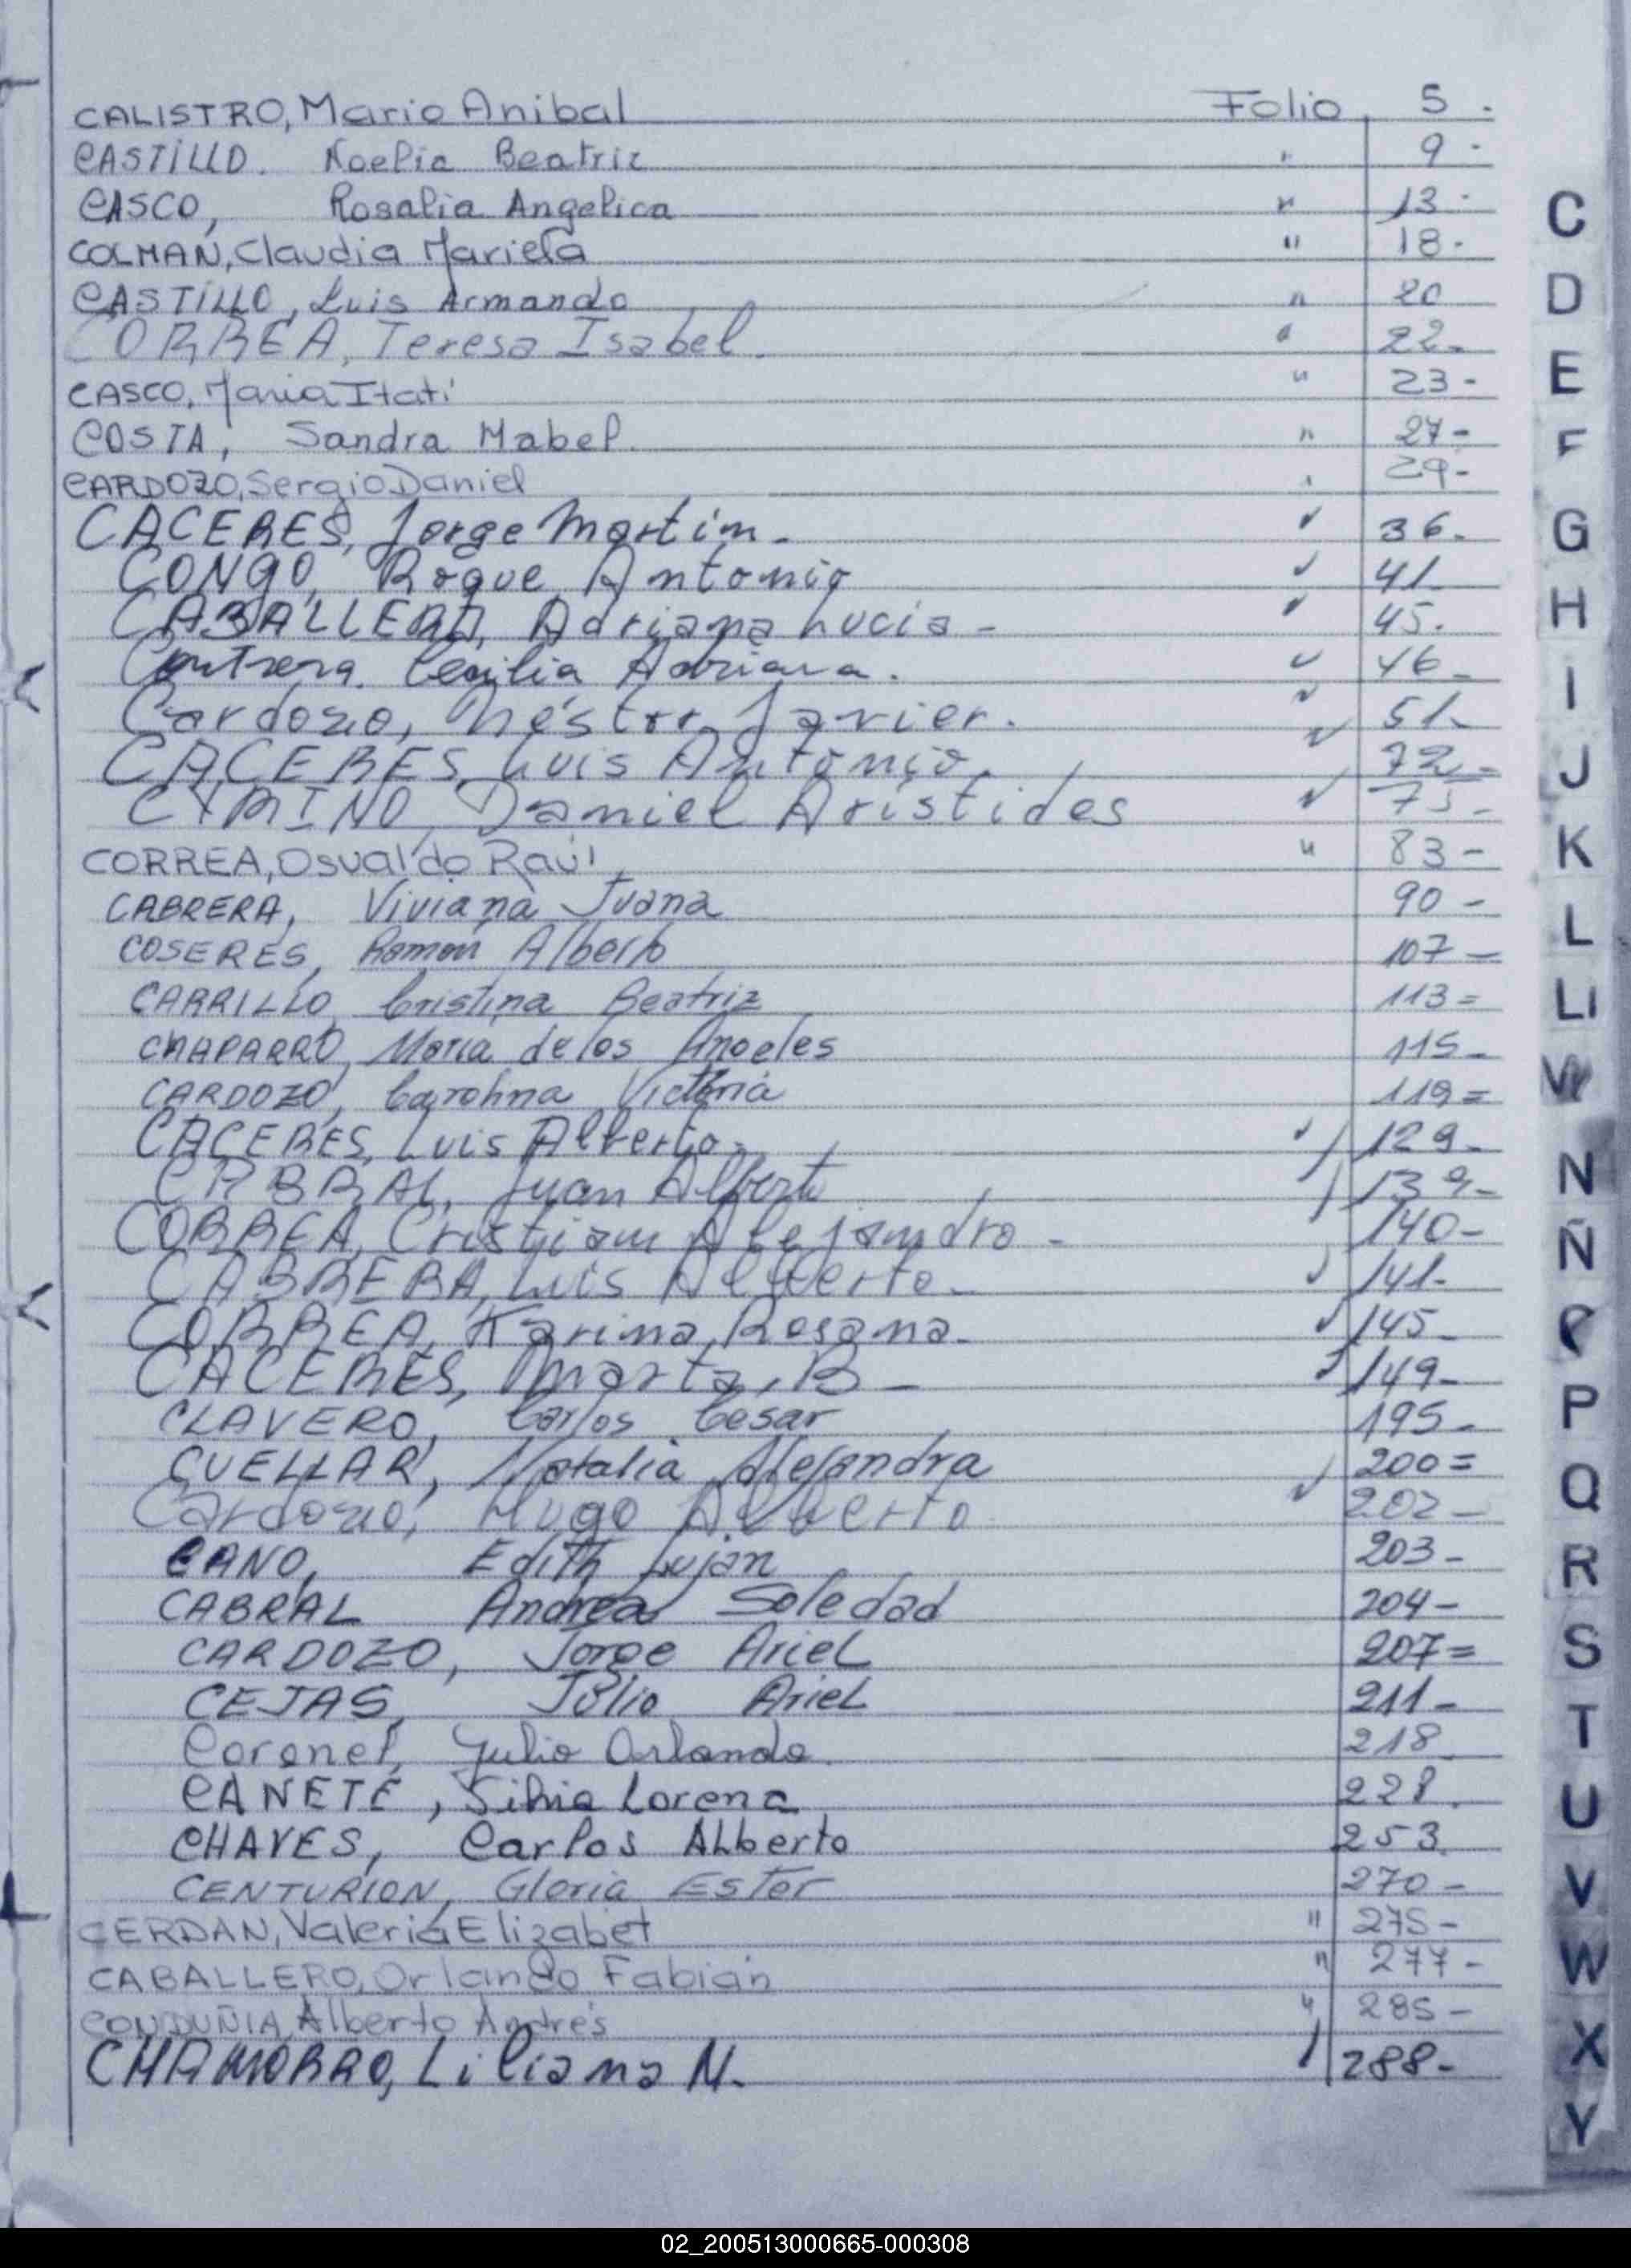 CALISTRO, Mario Anibal Folio 5.
CASTILLO. Noelia Beatriz " 9-
CASCO, Rosalia Angelica " 13-
COLMAN, Claudia Mariela " 18-
CASTILLO, Luis Armando " 20
CORREA, Teresa Isabel. " 22-
CASCO, Maria Itati " 23-
COSTA, Sandra Mabel. " 27-
CARDOZO, Sergio Daniel " 29-
CACERES, Jorge Martin. " 36-
CONGO, Roque Antonio " 41
CABALLERO, Adriana Lucia - " 45.
Contrera. Cecilia Adriana. " 46-
Cardozo, Néstor Javier. " 51-
CACERES, Luis Antonio, " 72-
Daniel Aristides " 75-
CORREA, Osvaldo Raúl " 83-
CABRERA, Viviana Juana 90-
COSERES, Ramon Alberto 107-
CARRILLO, Cristina Beatriz 113=
CHAPARRO, Maria de los Angeles 115-
CARDOZO, Carolina Victoria 119=
CACERES, Luis Alberto- " 129-
CABRAL, Juan Alberto " 139-
CORREA, Cristian Alejandro - " 140-
CABRERA, Luis Alberto- " 141-
CORREA, Karina Rosana- " 145-
CACERES, Marta, B- " 149-
CLAVERO, Carlos Cesar 195-
CUELLAR, Natalia Alejandra 200=
Cardozo, Hugo Alberto " 202-
CANO, Edith Lujan 203-
CABRAL Andrea Soledad 204-
CARDOZO, Jorge Ariel 207=
CEJAS, Julio Ariel 211-
Coronel, Julio Orlando. 218
CANETE, Silvia Lorena 228.
CHAVES, Carlos ALberto 253
CENTURION, Gloria Ester 270-
CERDAN, Valeria Elizabet " 275-
CABALLERO, Orlando Fabián " 277-
CONDUÑIA, Alberto Andrés " 285-
CHAMORRO, Liliana N. " 288-
C
D
E
F
G
H
I
J
K
L
Ll
N
Ñ
P
Q
R
S
T
U
V
W
X
Y
02_200513000665-000308